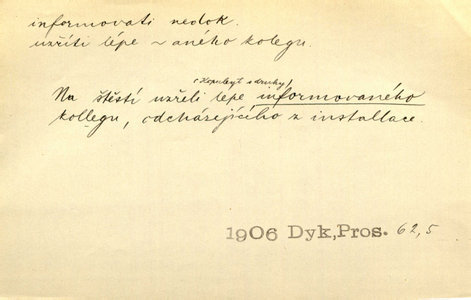 informovati nedok.
uzříti lépe ~ aného kolegu.
(Kopulent s druhy)
Na štěstí uzřeli lépe informovaného
kollegu, odcházejícího z installace.
1906 Dyk, Pros. 62,5